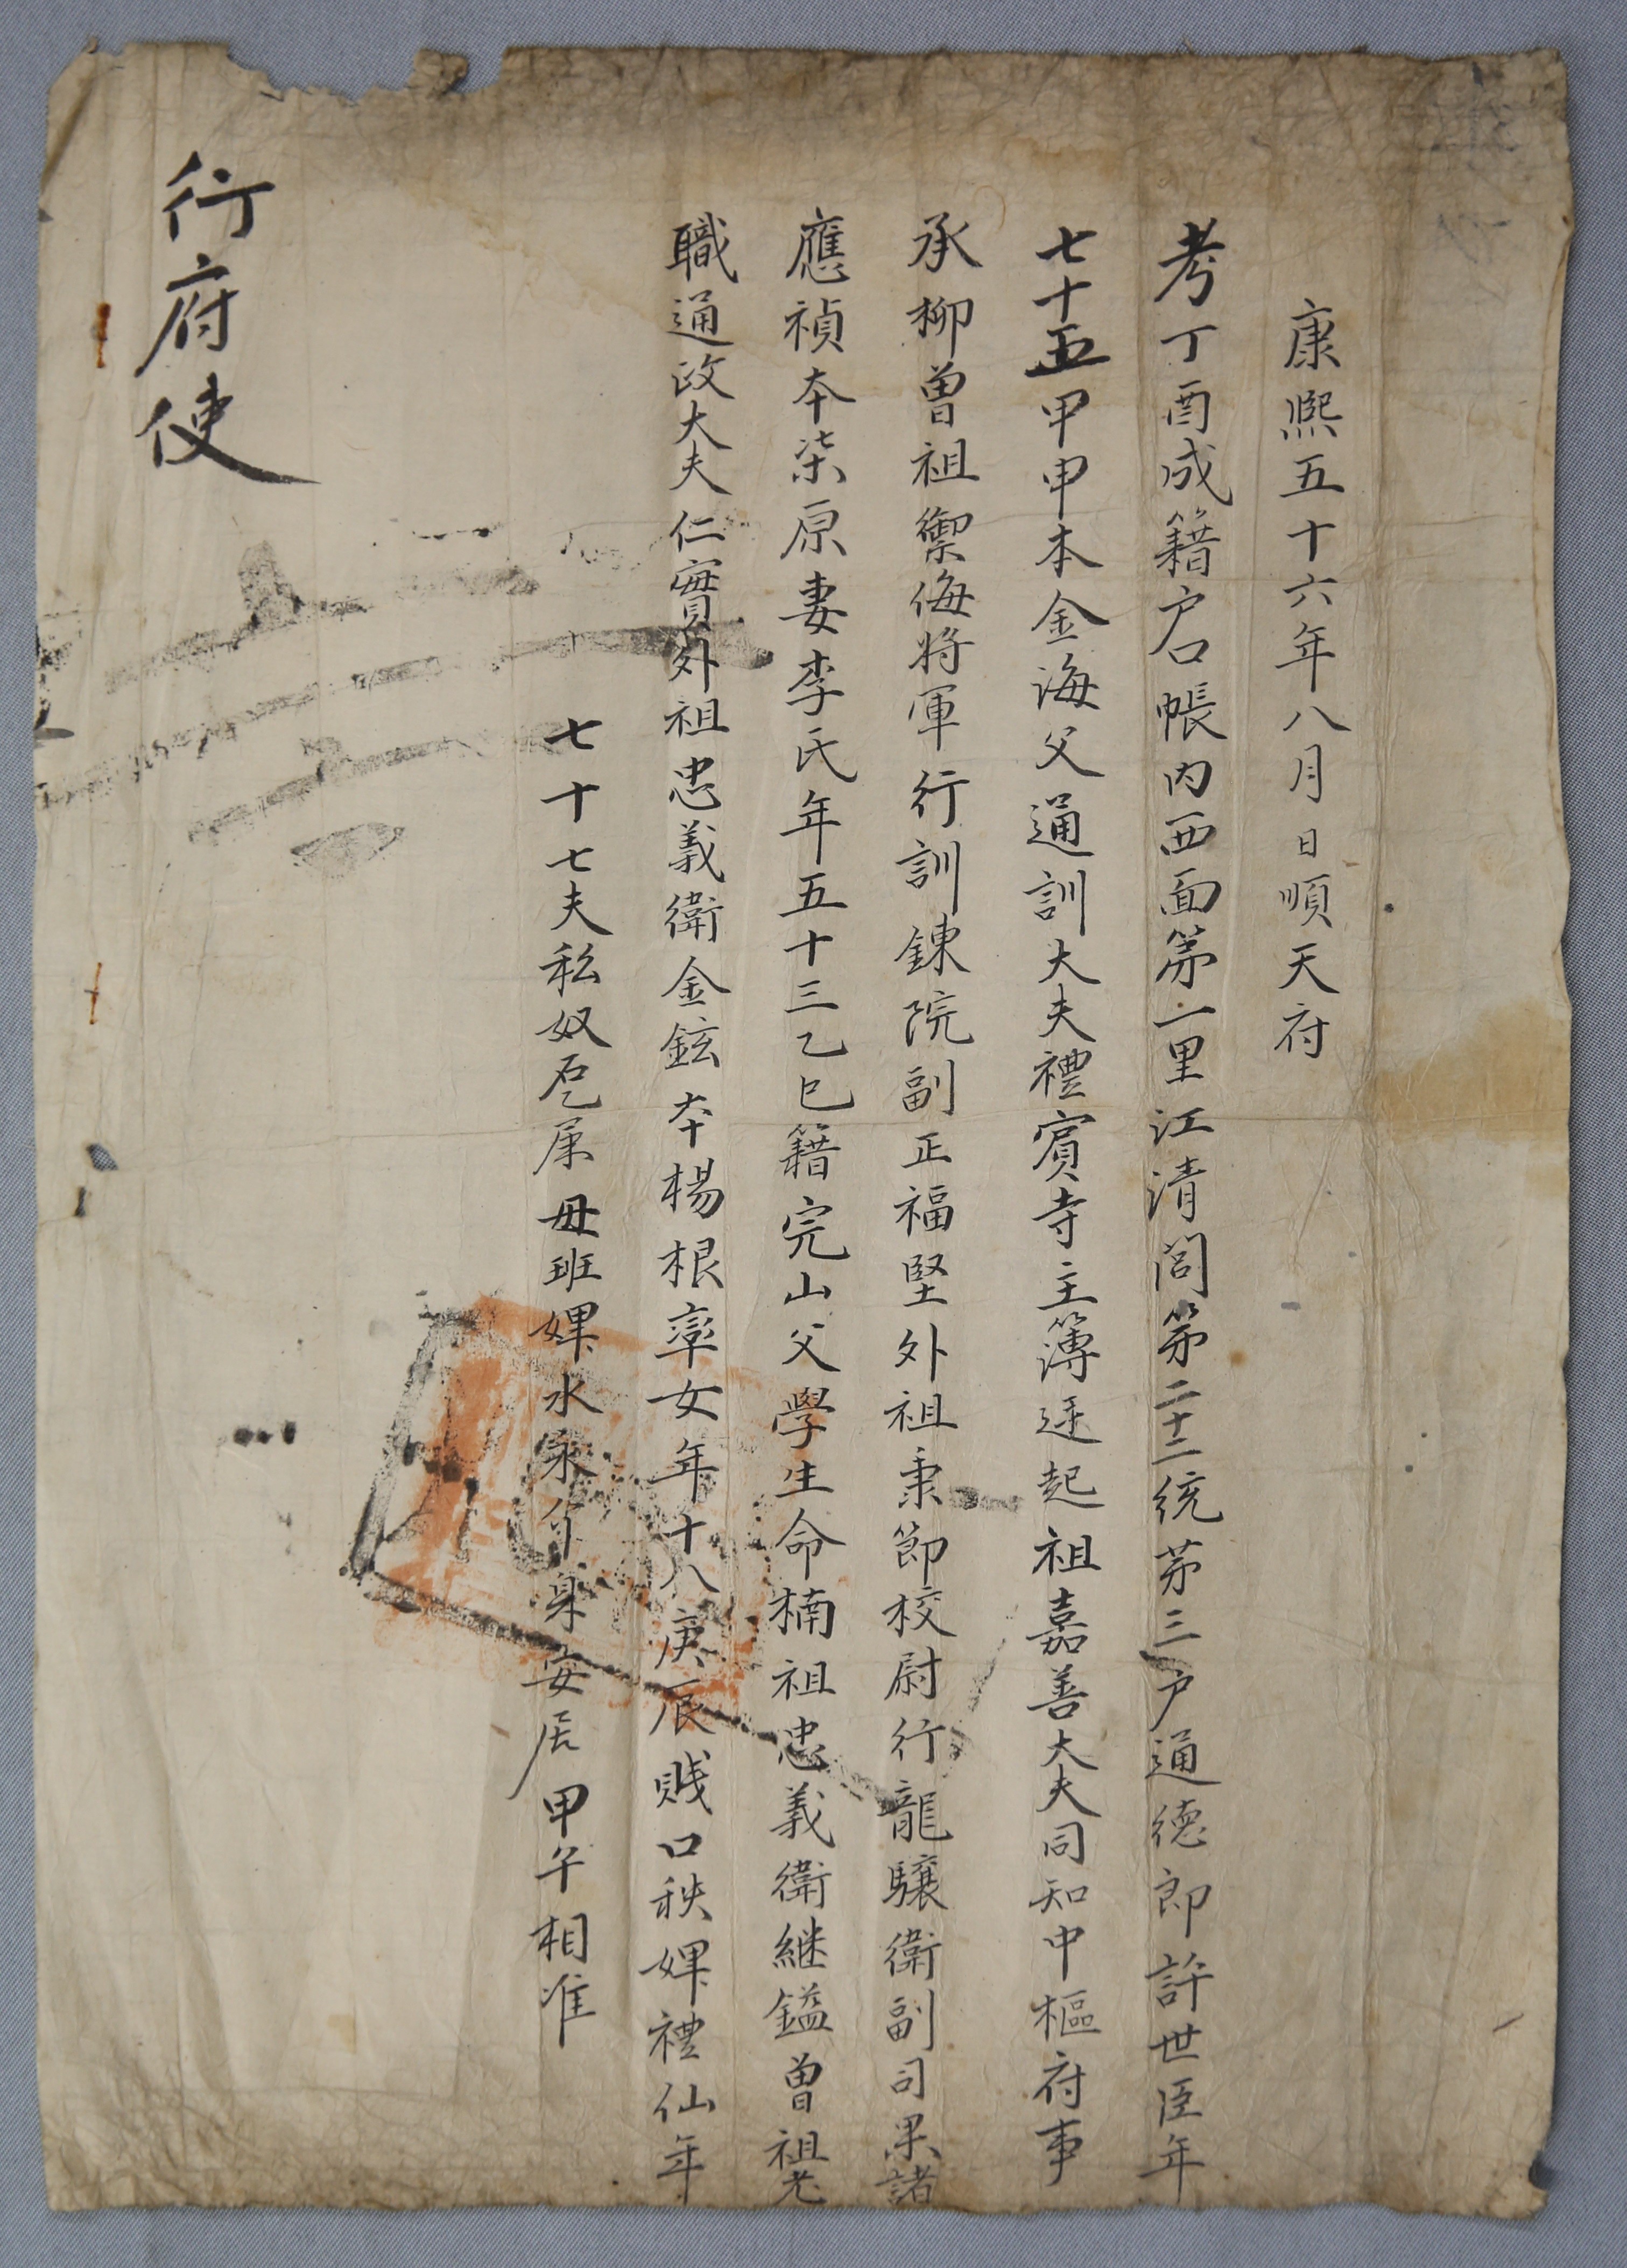 康熙五十六年八月日順天府
考丁酉成籍户口帳内西面第一里江清閭第二十二統第三户通德郎許世臣年
七十五甲申本金海父通訓大夫禮賓寺主簿廷起祖嘉善大夫同知中樞府事
承柳曾祖禦侮將軍行訓鍊院副正福堅外祖秉節校尉行龍驤衛副司果諸
應禎本柒原妻李氏年五十三乙巳籍完山父學生命楠祖忠義衛継鎰曽祖老
職通政大夫仁實外祖忠義衛金鉉本楊根率女年十八庚辰賤口秩婢禮仙年
七十七夫私奴屎母班婢水永介身安居甲午相准
行府使